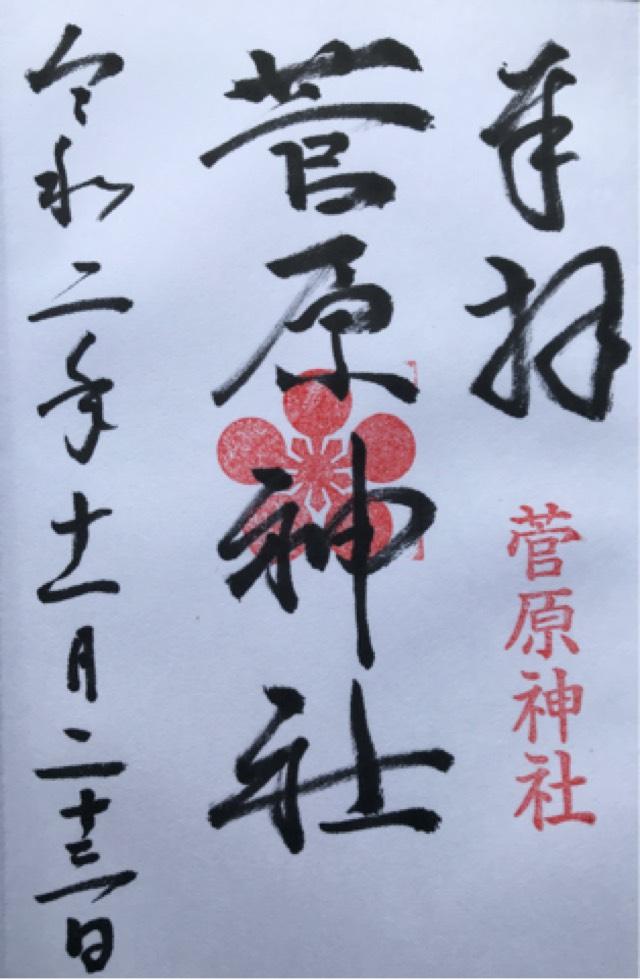 奉拝
菅原神社
菅原神社
令和二年十一月二十三日